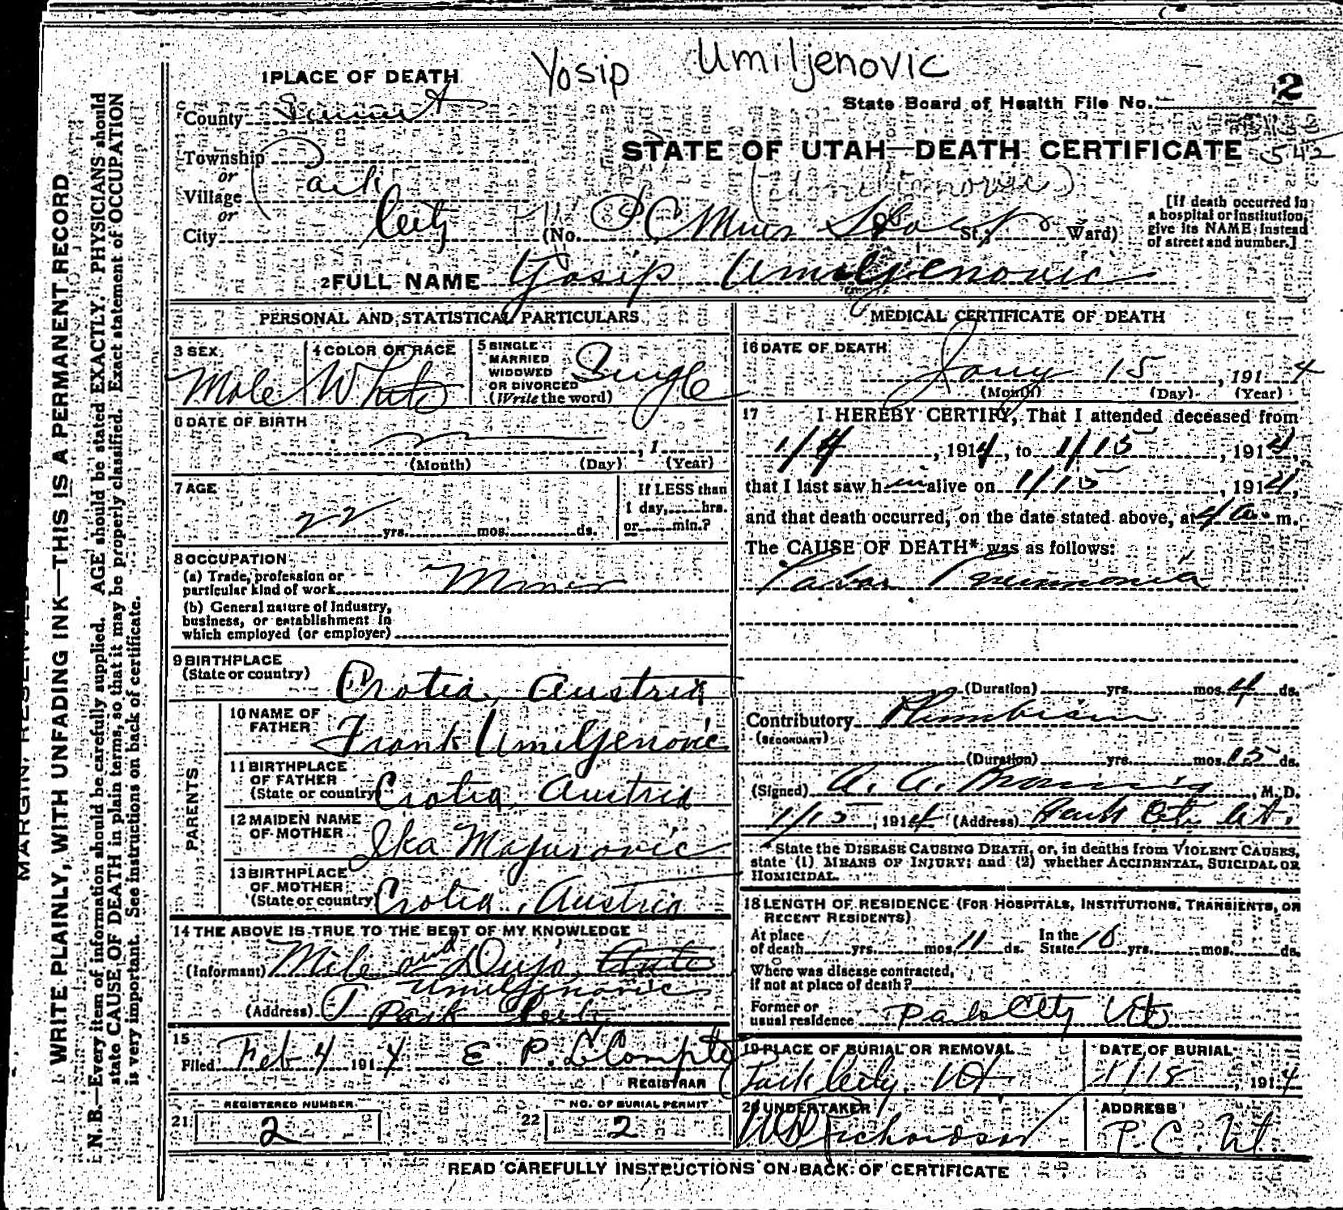 Yosip Umiljenovic
1 PLACE OF DEATH
2
State Board of Health File No.
County Summit
STATE OF UTAH—DEATH CERTIFICATE
542
Township
or
Village Park
or
City City (No. P C Miners Hosp St.; Ward)
[If death occurred in
a hospital or institution,
give its NAME instead
of street and number.]
2 FULL NAME Yosip Umiljenovic
PERSONAL AND STATISTICAL PARTICULARS
3 SEX Male
4 COLOR OR RACE White
5 SINGLE
MARRIED
WIDOWED
OR DIVORCED
(Write the word) Single
6 DATE OF BIRTH
, 1
(Month) (Day) (Year)
7 AGE
22 yrs. mos. ds.
If LESS than
1 day, hrs.
or min.?
8 OCCUPATION
(a) Trade, profession or
particular kind of work Miner
(b) General nature of Industry,
business, or establishment in
which employed (or employer)
9 BIRTHPLACE
(State or country) Crotia, Austria
PARENTS
10 NAME OF
FATHER Frank Umiljenovic
11 BIRTHPLACE
OF FATHER
(State or country) Crotia, Austria
12 MAIDEN NAME
OF MOTHER Ika Majusovic
13 BIRTHPLACE
OF MOTHER
(State or country) Crotia, Austria
14 THE ABOVE IS TRUE TO THE BEST OF MY KNOWLEDGE
(Informant) Mile and Dujo
Umiljenovic
(Address) Park City
15
Filed Feb 4 1914 E. P. LeCompte
REGISTRAR
REGISTERED NUMBER
21 2
NO. OF BURIAL PERMIT
22 2
MEDICAL CERTIFICATE OF DEATH
16 DATE OF DEATH
Jany 15, 1914
(Month) (Day) (Year)
17 I HEREBY CERTIFY, That I attended deceased from
1/4, 1914, to 1/15, 1914,
that I last saw him alive on 1/15, 1914,
and that death occurred, on the date stated above, at 4 a. m.
The CAUSE OF DEATH* was as follows:
Lobar Pneumonia
(Duration) yrs. mos. 4 ds.
Contributory
(SECONDARY)
(Duration) yrs. mos. 15 ds.
(Signed) , M. D.
1/15, 1914 (Address) Park City Ut.
*State the DISEASE CAUSING DEATH, or, in deaths from VIOLENT CAUSES,
state (1) MEANS OF INJURY; and (2) whether ACCIDENTAL, SUICIDAL OR
HOMICIDAL.
18 LENGTH OF RESIDENCE (FOR HOSPITALS, INSTITUTIONS, TRANSIENTS, OR
RECENT RESIDENTS)
At place
of death yrs. mos. 11 ds.
In the
State 10 yrs. mos. ds.
Where was disease contracted,
if not at place of death?
Former or
usual residence Park City Ut
19 PLACE OF BURIAL OR REMOVAL
Park City, Ut
DATE OF BURIAL
1/18, 1914
20 UNDERTAKER
W Richardson
ADDRESS
P. C. Ut
READ CAREFULLY INSTRUCTIONS ON BACK OF CERTIFICATE
MARGIN RESERVED
WRITE PLAINLY, WITH UNFADING INK—THIS IS A PERMANENT RECORD
N. B.—Every item of information should be carefully supplied. AGE should be stated EXACTLY. PHYSICIANS should
state CAUSE OF DEATH in plain terms, so that it may be properly classified. Exact statement of OCCUPATION
is very important. See instructions on back of certificate.